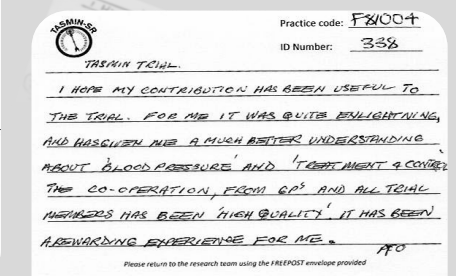 TASMIN-SR
Practice code: F81004
ID Number: 338
TASMIN TRIAL.
I HOPE MY CONTRIBUTION HAS BEEN USEFUL TO
THE TRIAL. FOR ME IT WAS QUITE ENLIGHTNING,
AND HASGIVEN ME A MUCH BETTER UNDERSTANDING
ABOUT 'BLOOD PRESSURE' AND 'TREATMENT & CONTROL'
THE CO-OPERATION, FROM GP'S AND ALL TRIAL
MEMBERS HAS BEEN 'HIGH QUALITY'. IT HAS BEEN
A REWARDING EXPERIENCE FOR ME.
PTO
Please return to the research team using the FREEPOST envelope provided